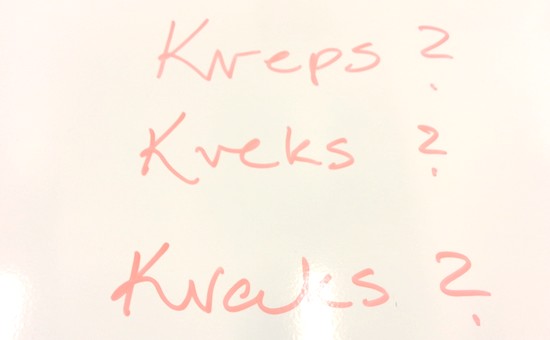 Kreps ?
Kreks ?
Kraks ?